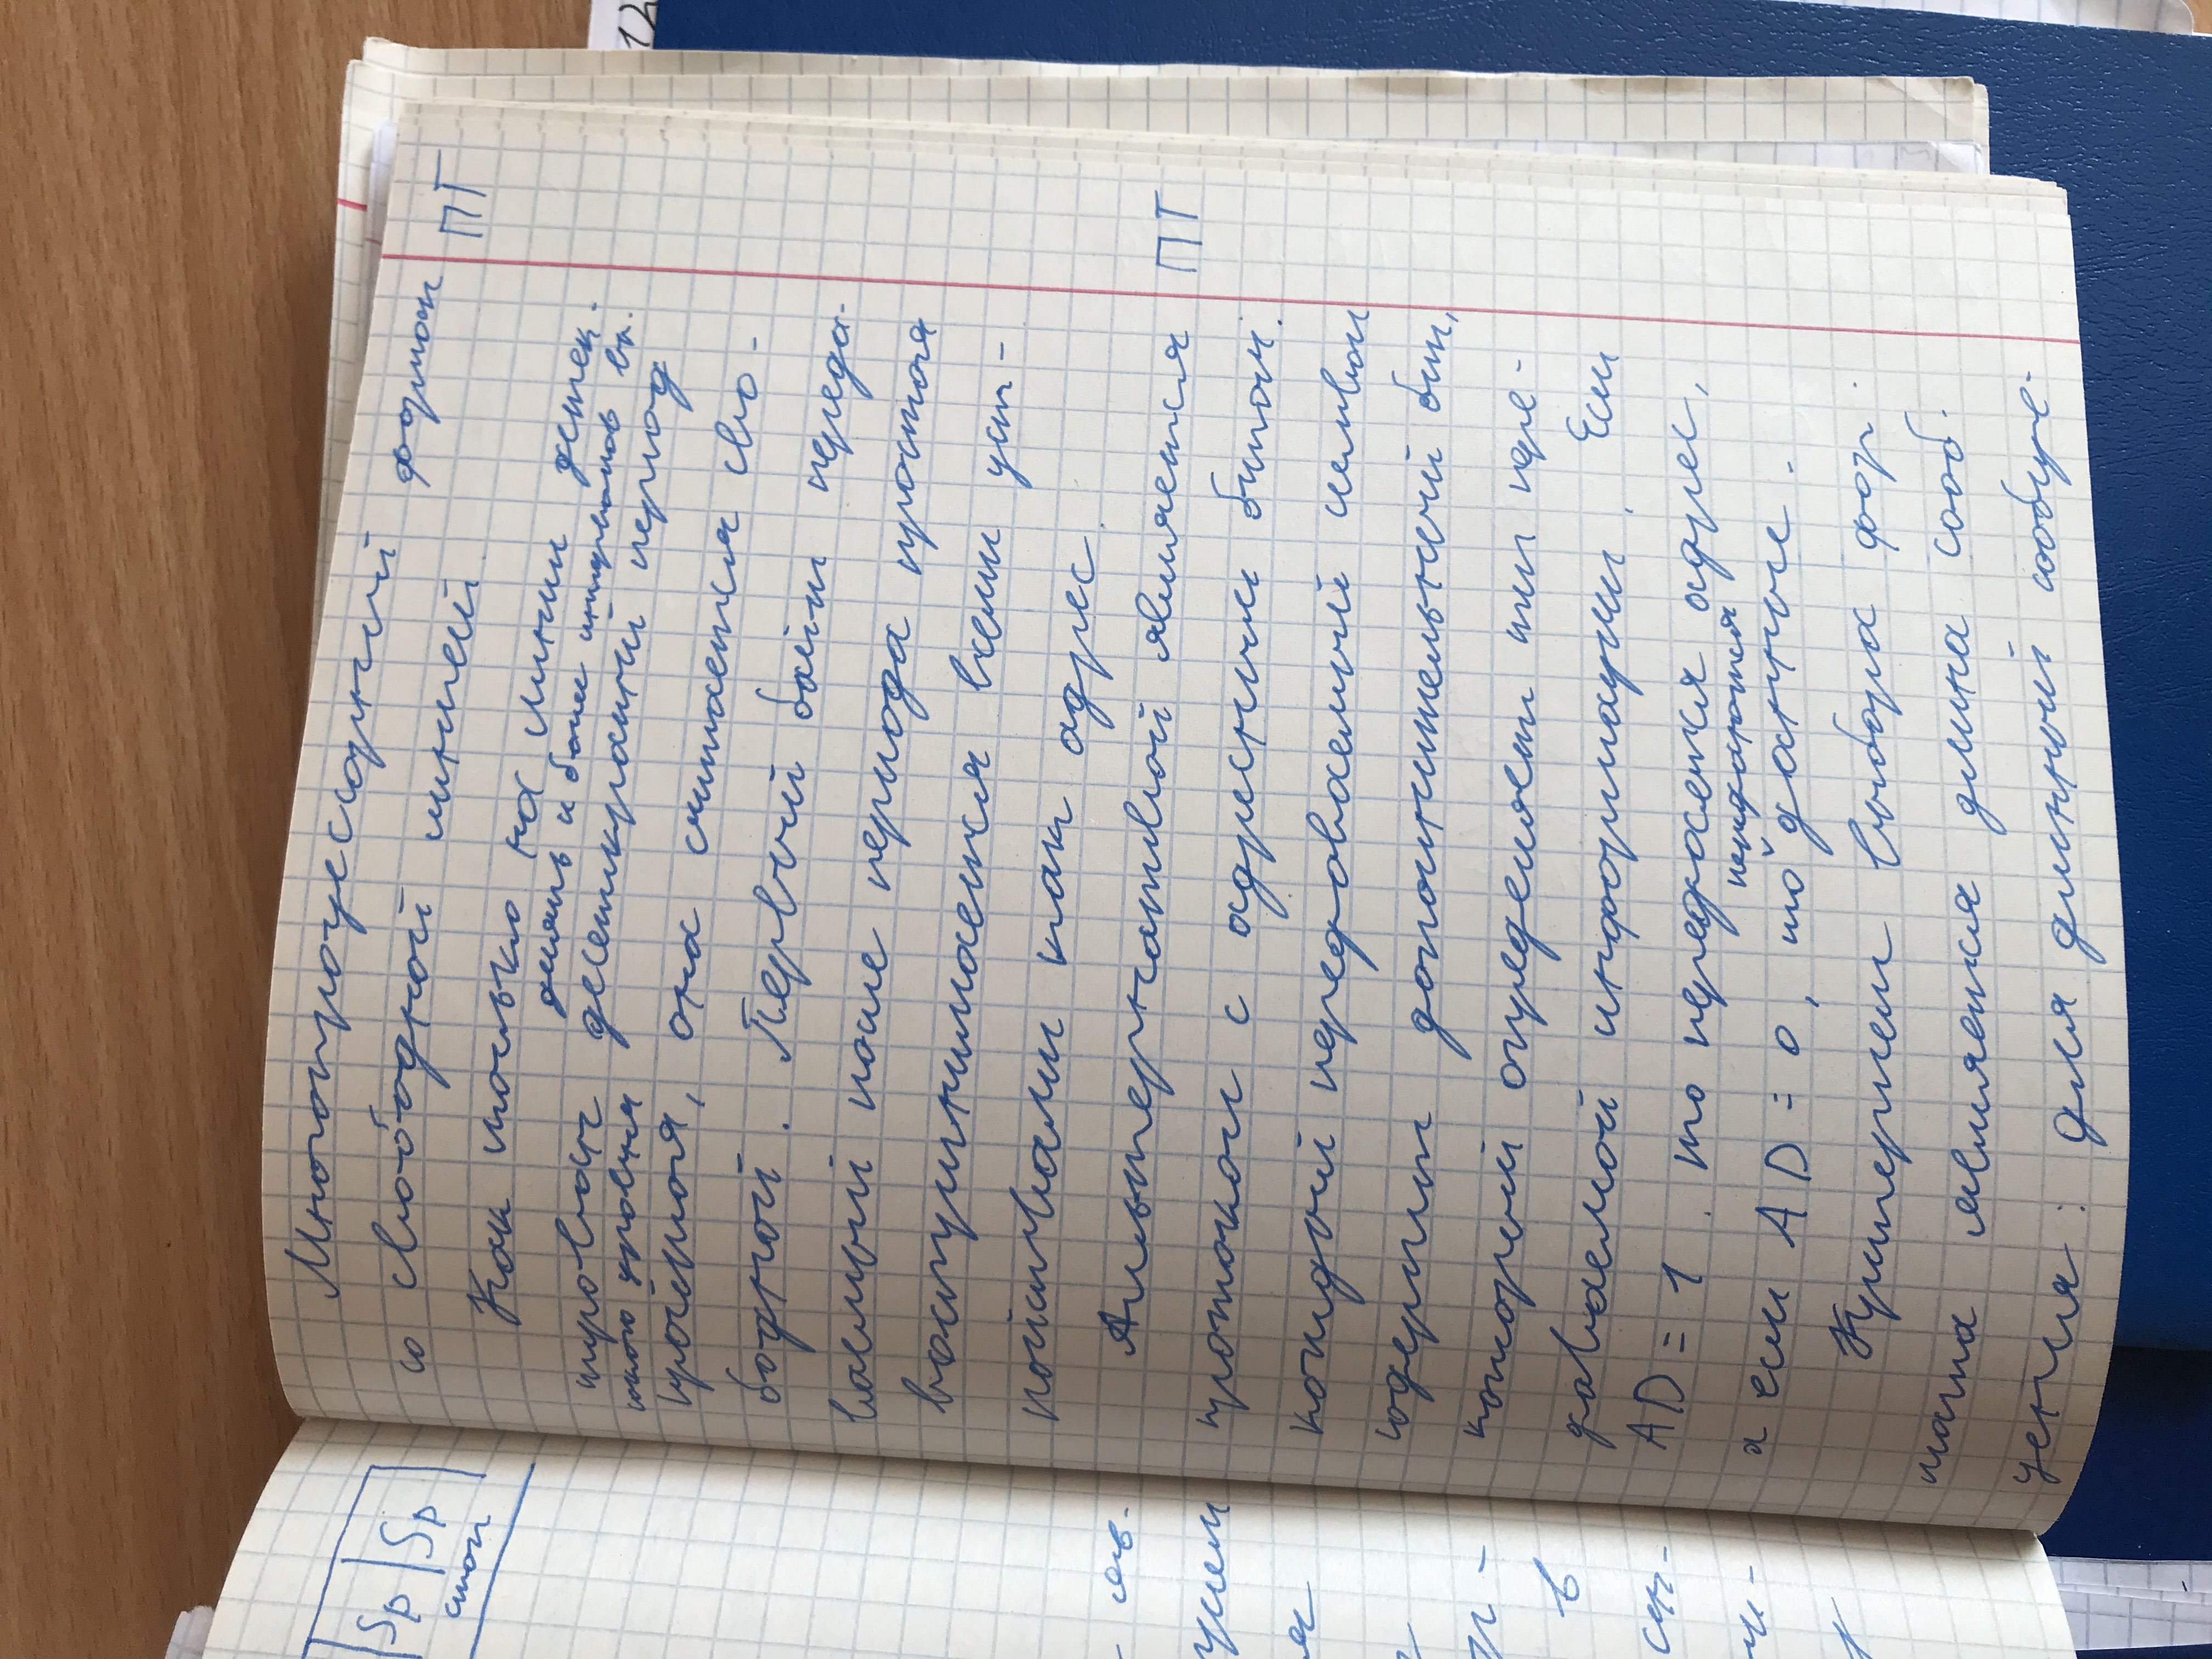 Sp Sp
стоп
яв-
в
Многопроцессорный формат
со свободной линией.
ПТ
Как только на линии детек-
десять и более интервалов вы-
тирован десятикратный период
сокого уровня
простоя, она считается сво-
бодной. Первый байт переда-
ваемый после периода простоя
воспринимается всеми уст-
ройствами как адрес.
Альтернативой является
ПТ
протокол с адресным битом:
каждый передаваемый символ
содержит дополнительный бит,
который определяет тип пере-
даваемой информации. Если
AD = 1, то передается адрес,
передаются
а если AD = 0, то данные.
Критерием выбора фор-
мата является длина сооб-
щения: для длинный сообще-
12